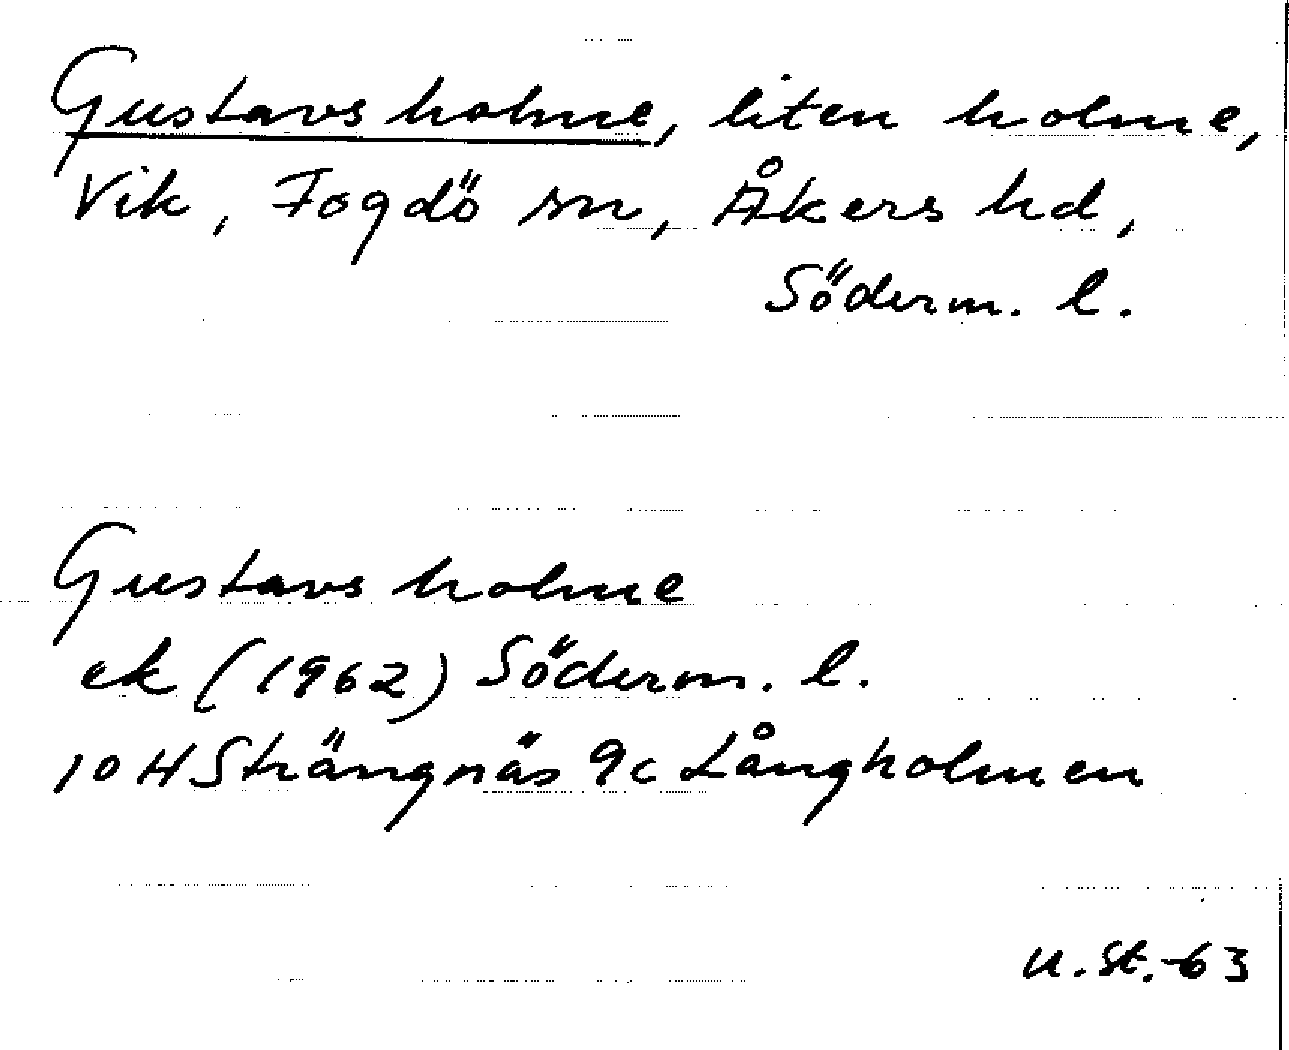 Gustavsholme, liten holme,
Vik, Fogdö sn, Åkers hd,
Söderm. l.
Gustavsholme
ek (1962) Söderm. l.
10 H Strängnäs 9c Långholmen
U. St. -63